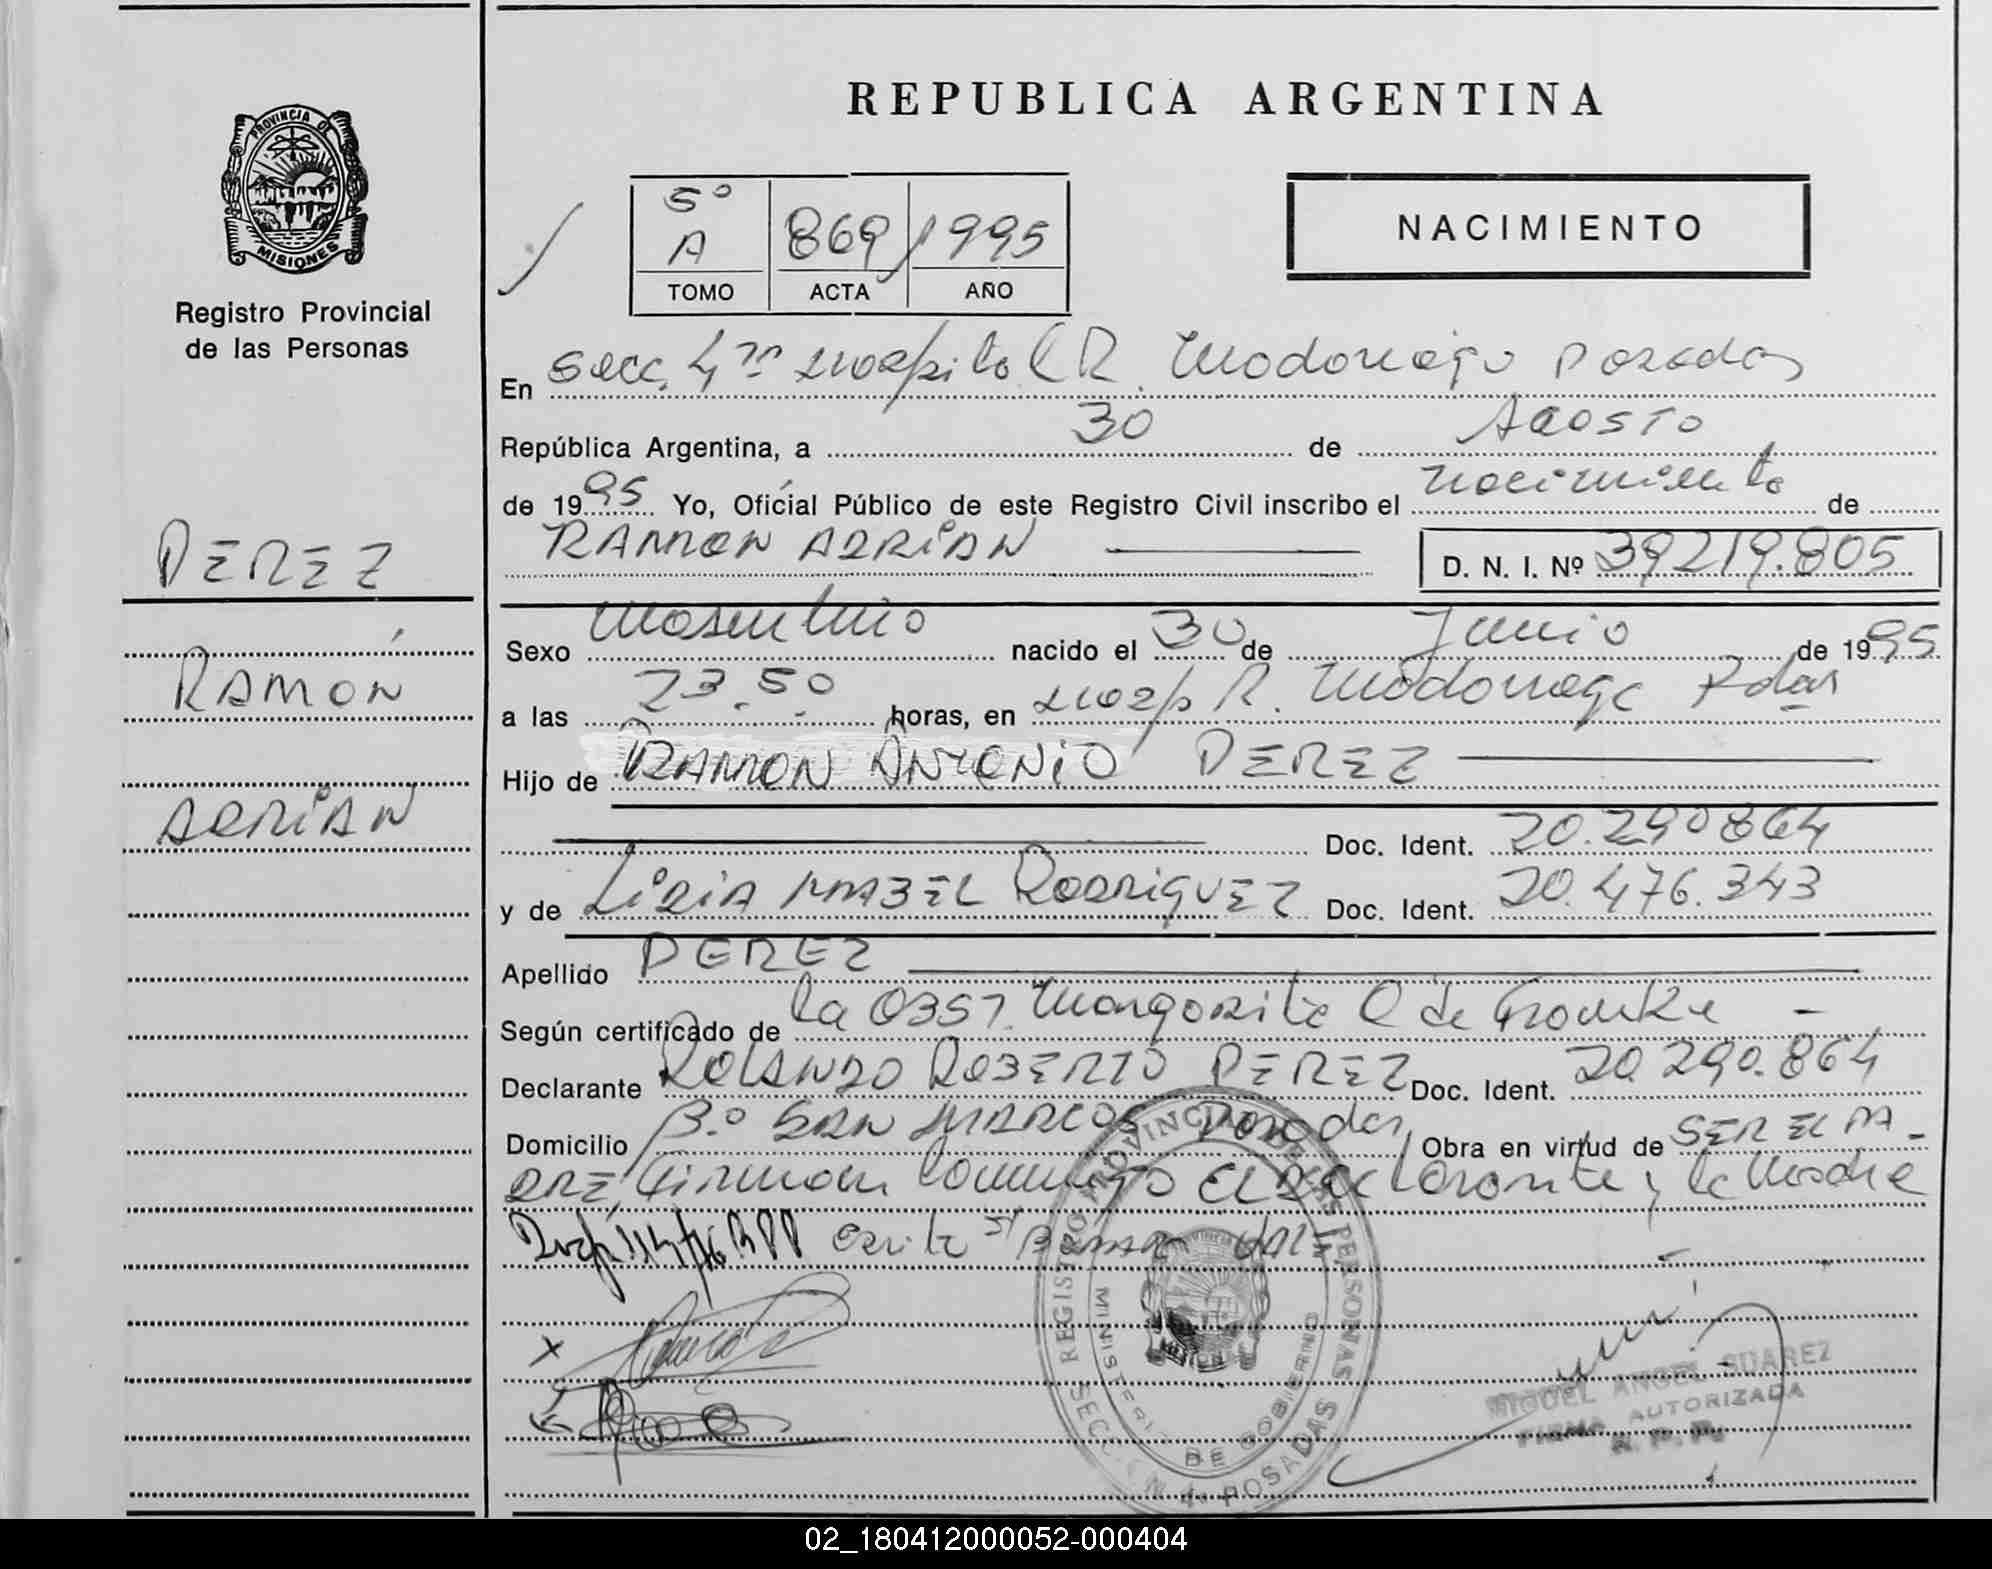 REPUBLICA ARGENTINA
PROVINCIA DE
MISIONES
Registro Provincial
de las Personas
5º
A 869 1995
TOMO ACTA AÑO
NACIMIENTO
En Secc. 4ª Hospital R. Madariaga Posadas
República Argentina, a 30 de AGOSTO
de 1995 Yo, Oficial Público de este Registro Civil inscribo el nacimiento de
RAMON ADRIAN
D. N. I. Nº 39219.805
PEREZ
RAMÓN
ADRIAN
Sexo Masculino nacido el 30 de Junio de 1995
a las 23.50 horas, en Hosp R. Madariaga Pdas
Hijo de RAMON ANTONIO PEREZ
Doc. Ident. 20.290864
y de LIDIA MABEL RODRIGUEZ Doc. Ident. 20.476.343
Apellido PEREZ
Según certificado de la Obst. Margarita de
Declarante ROLANDO ROBERTO PEREZ Doc. Ident. 20.290.864
Domicilio B.º SAN MARCOS Posadas Obra en virtud de SER EL PA-
DRE, Firman conmigo El Declarante y la Madre
REGISTRO PROVINCIAL DE LAS PERSONAS
MINISTERIO DE GOBIERNO
SECCION 4ª POSADAS
MIGUEL ANGEL SUAREZ
FIRMA AUTORIZADA
R. P. P.
02_180412000052-000404